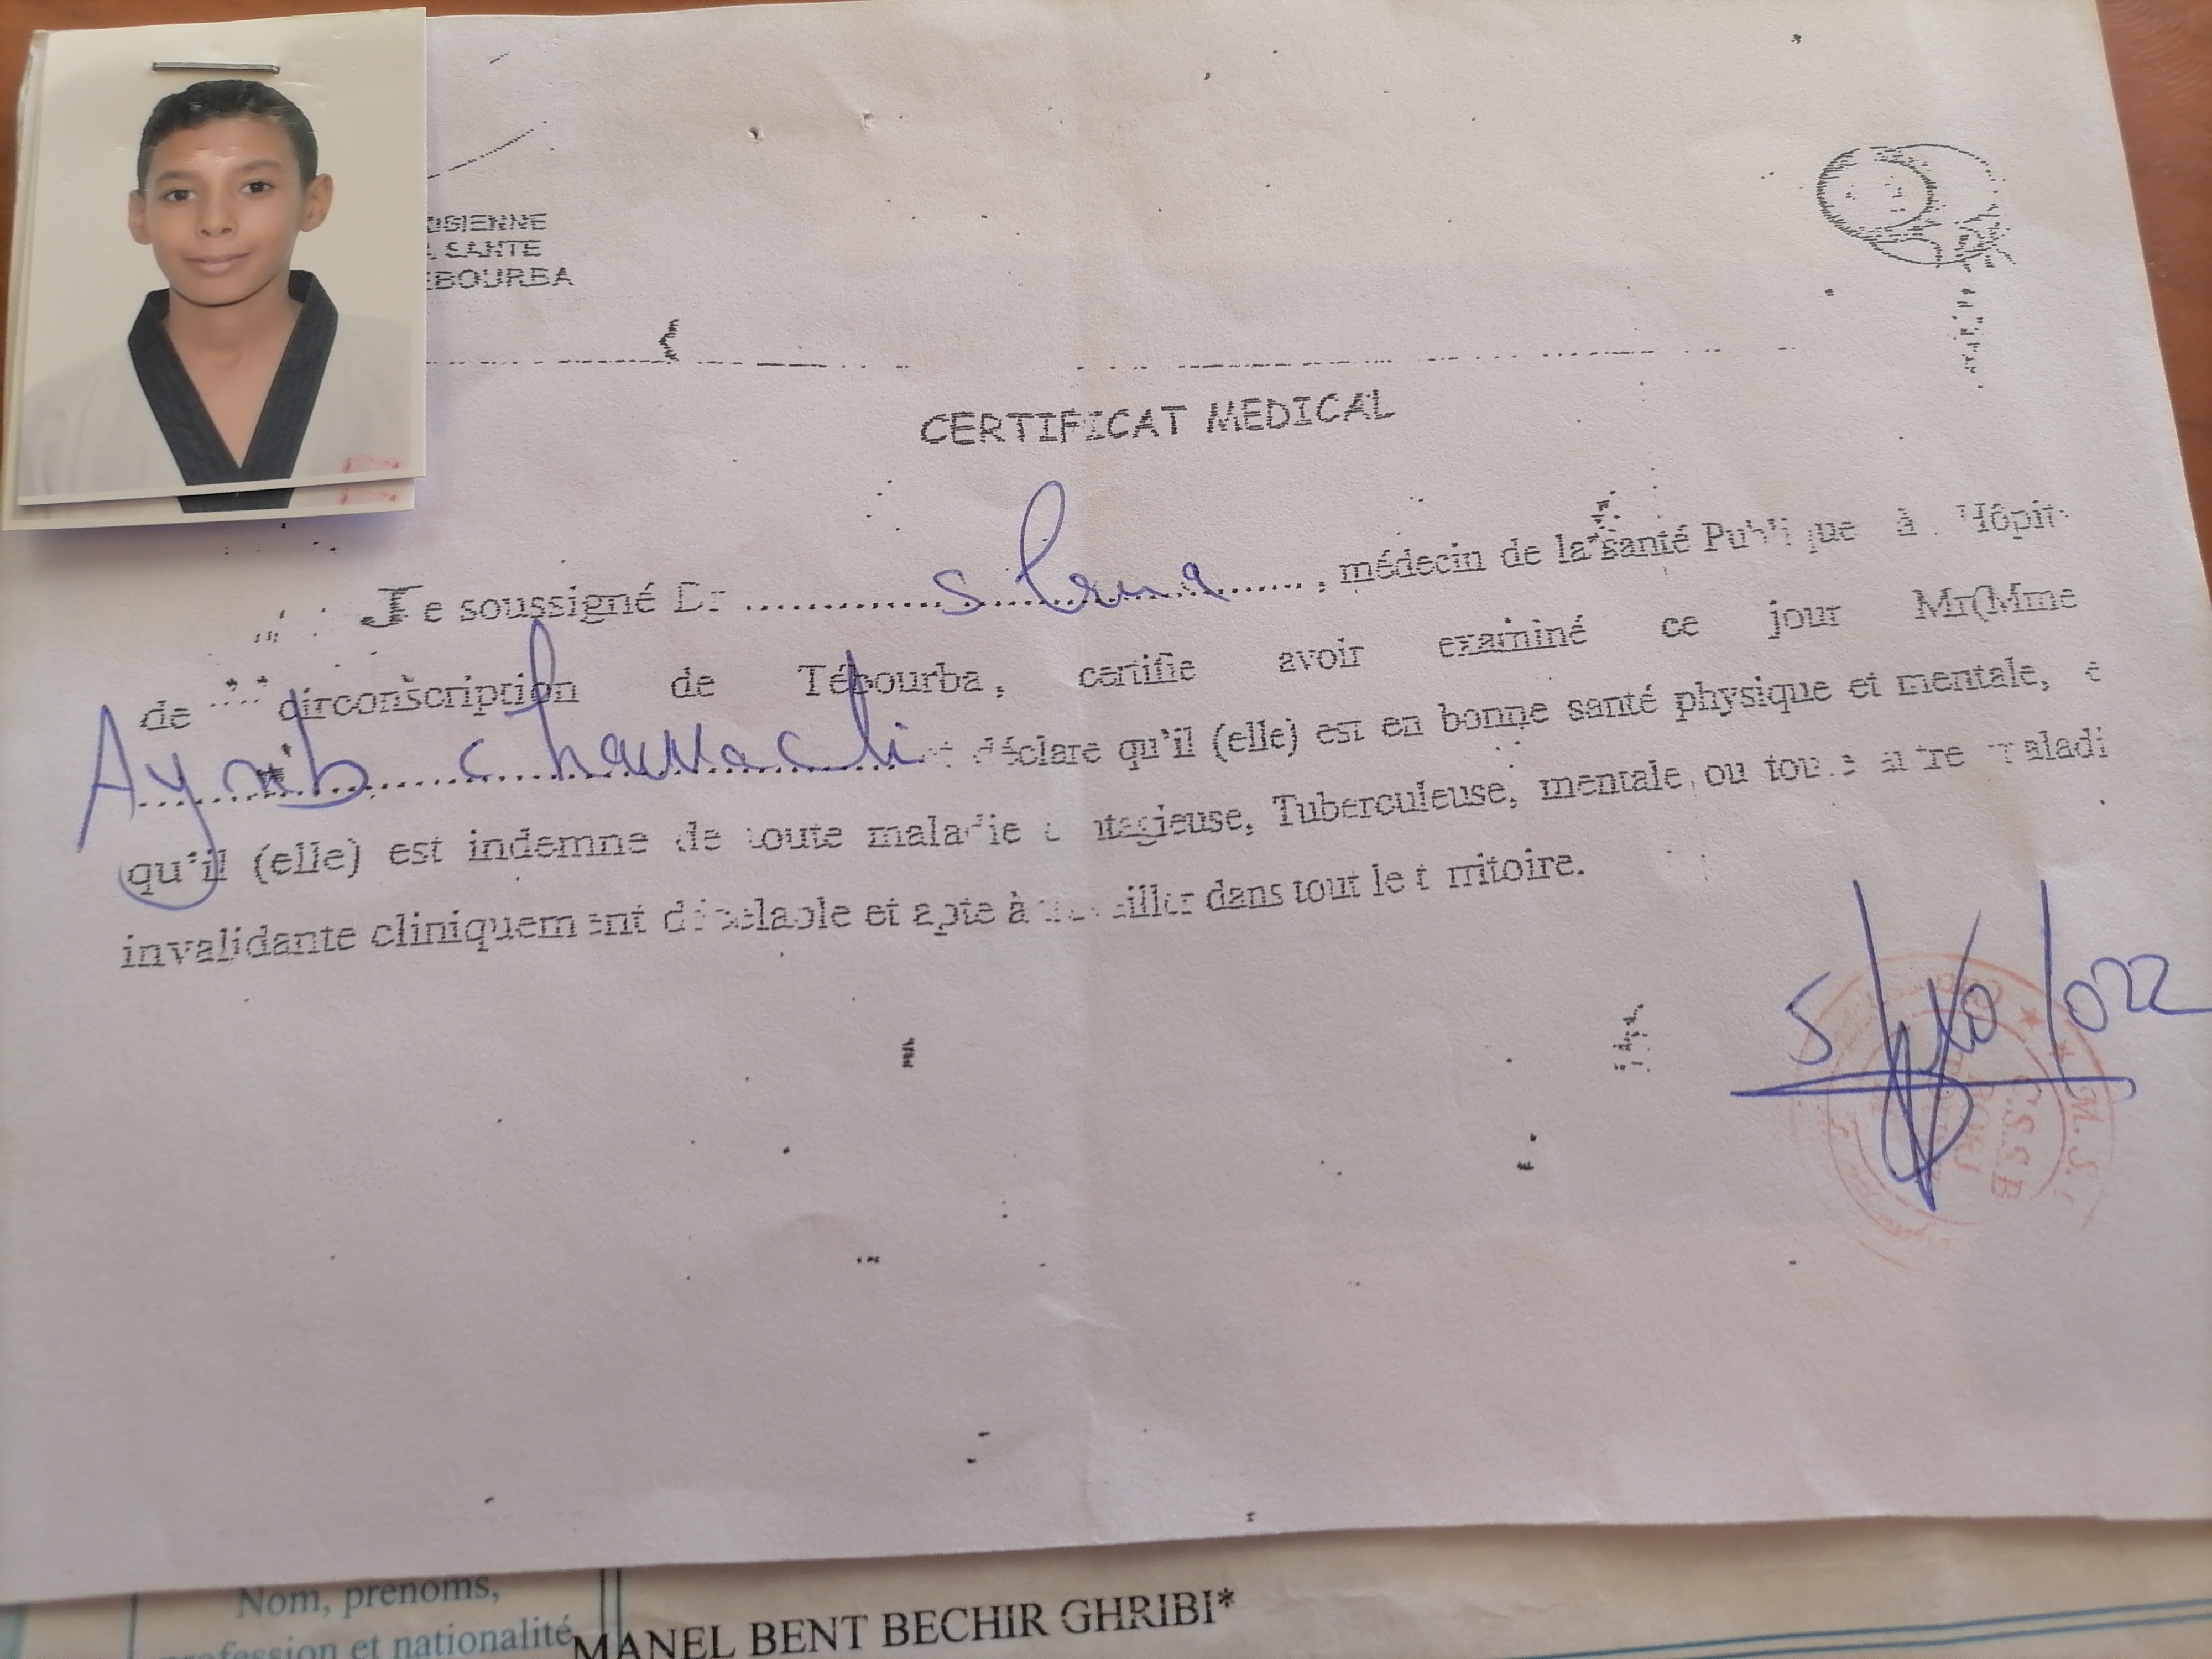 OSIENNE
SANTE
EBOURBA
CERTIFICAT MEDICAL
Je soussigné Dr ........................, médecin de la santé Publique à Hôpit
de circonscription de Tébourba, certifie avoir examiné ce jour Mr(Mme
Ayoub déclare qu'il (elle) est en bonne santé physique et mentale, e
qu'il (elle) est indemne de toute maladie contagieuse, Tuberculeuse, mentale ou toute autre maladi
invalidante cliniquement décelable et apte à travailler dans tout le territoire.
5/10/022
M.S.
C.S.S.B
Nom, prénoms,
profession et nationalité
MANEL BENT BECHIR GHRIBI*